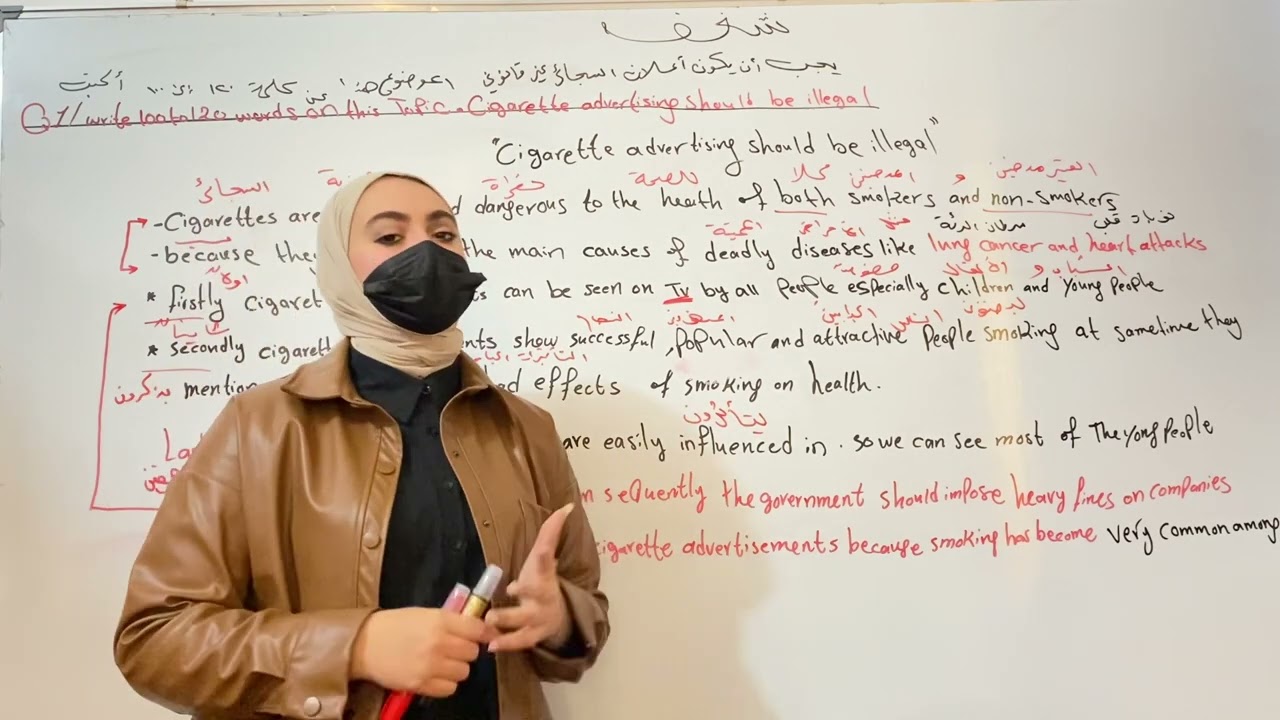 شغف
يجب أن يكون أعلان السجائر غير قانوني
Q1/ write 100 to 120 words on this Topic. Cigarette advertising should be illegal
"Cigarette advertising should be illegal"
السجائر خطرة للصحة كلا المدخنين و الغير مدخنين
-Cigarettes are d dangerous to the health of both smokers and non-smokers
سرطان الرئة
-because the the main causes of deadly diseases like lung cancer and heart attacks
اولاً خصوصية الأطفال و الشباب
* firstly cigaret s can be seen on Tv by all People especially children and young People
* secondly cigarett nts show successful, popular and attractive People smoking at sometime they
يذكرون mention ed effects of smoking on health.
يتأثرون
La are easily influenced in. so we can see most of The young People
n sequently the government should impose heavy fines on companies
cigarette advertisements because smoking has become very common among